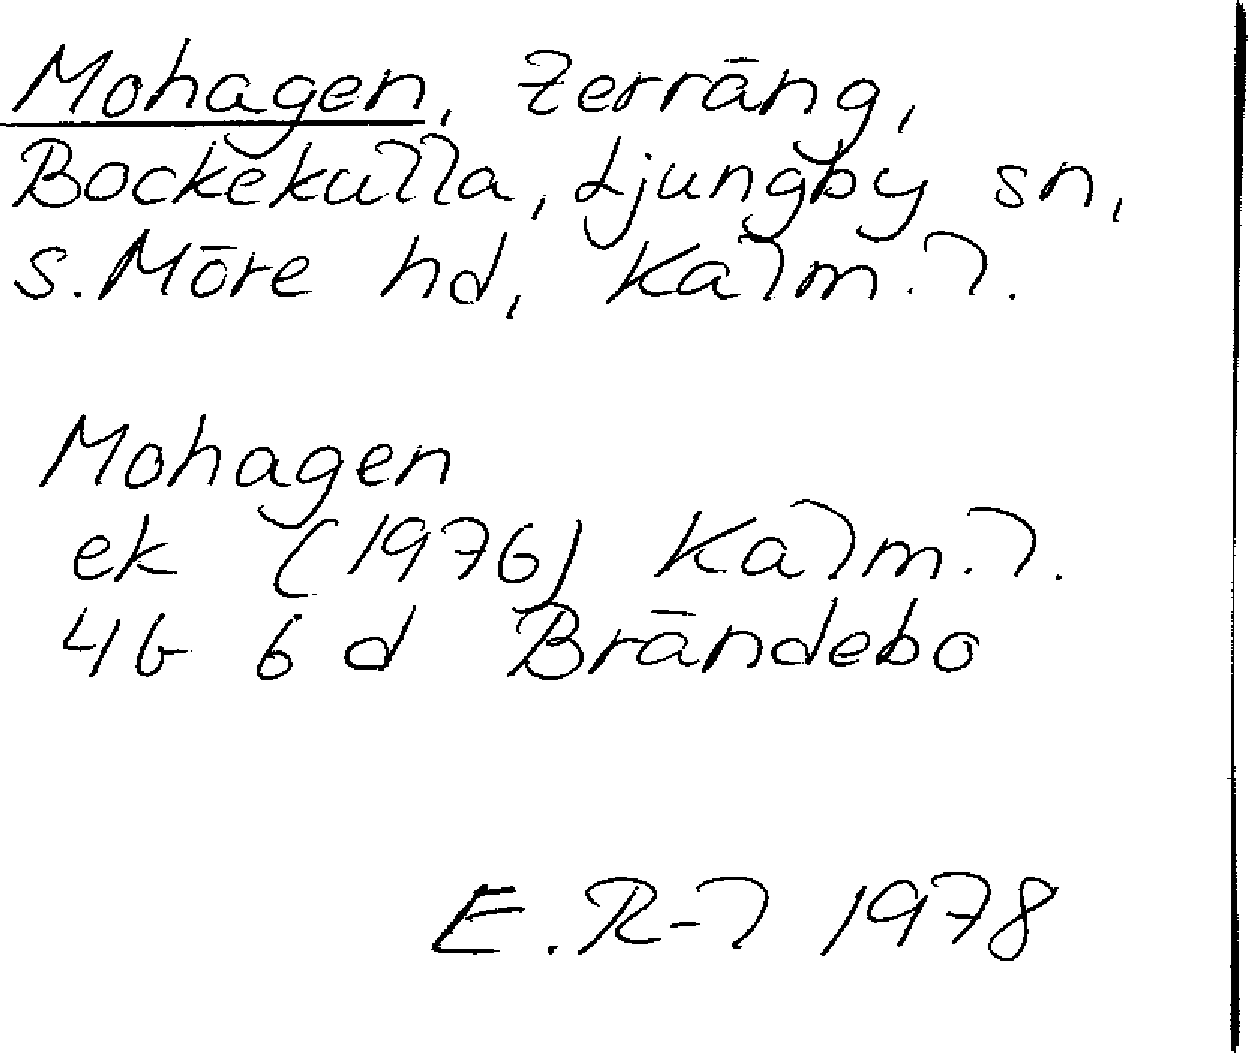 Mohagen, terräng,
Bockekulla, Ljungby sn,
S. Möre hd, Kalm. l.
Mohagen
ek (1976) Kalm. l.
4G 6d Brändebo
E. R-l 1978